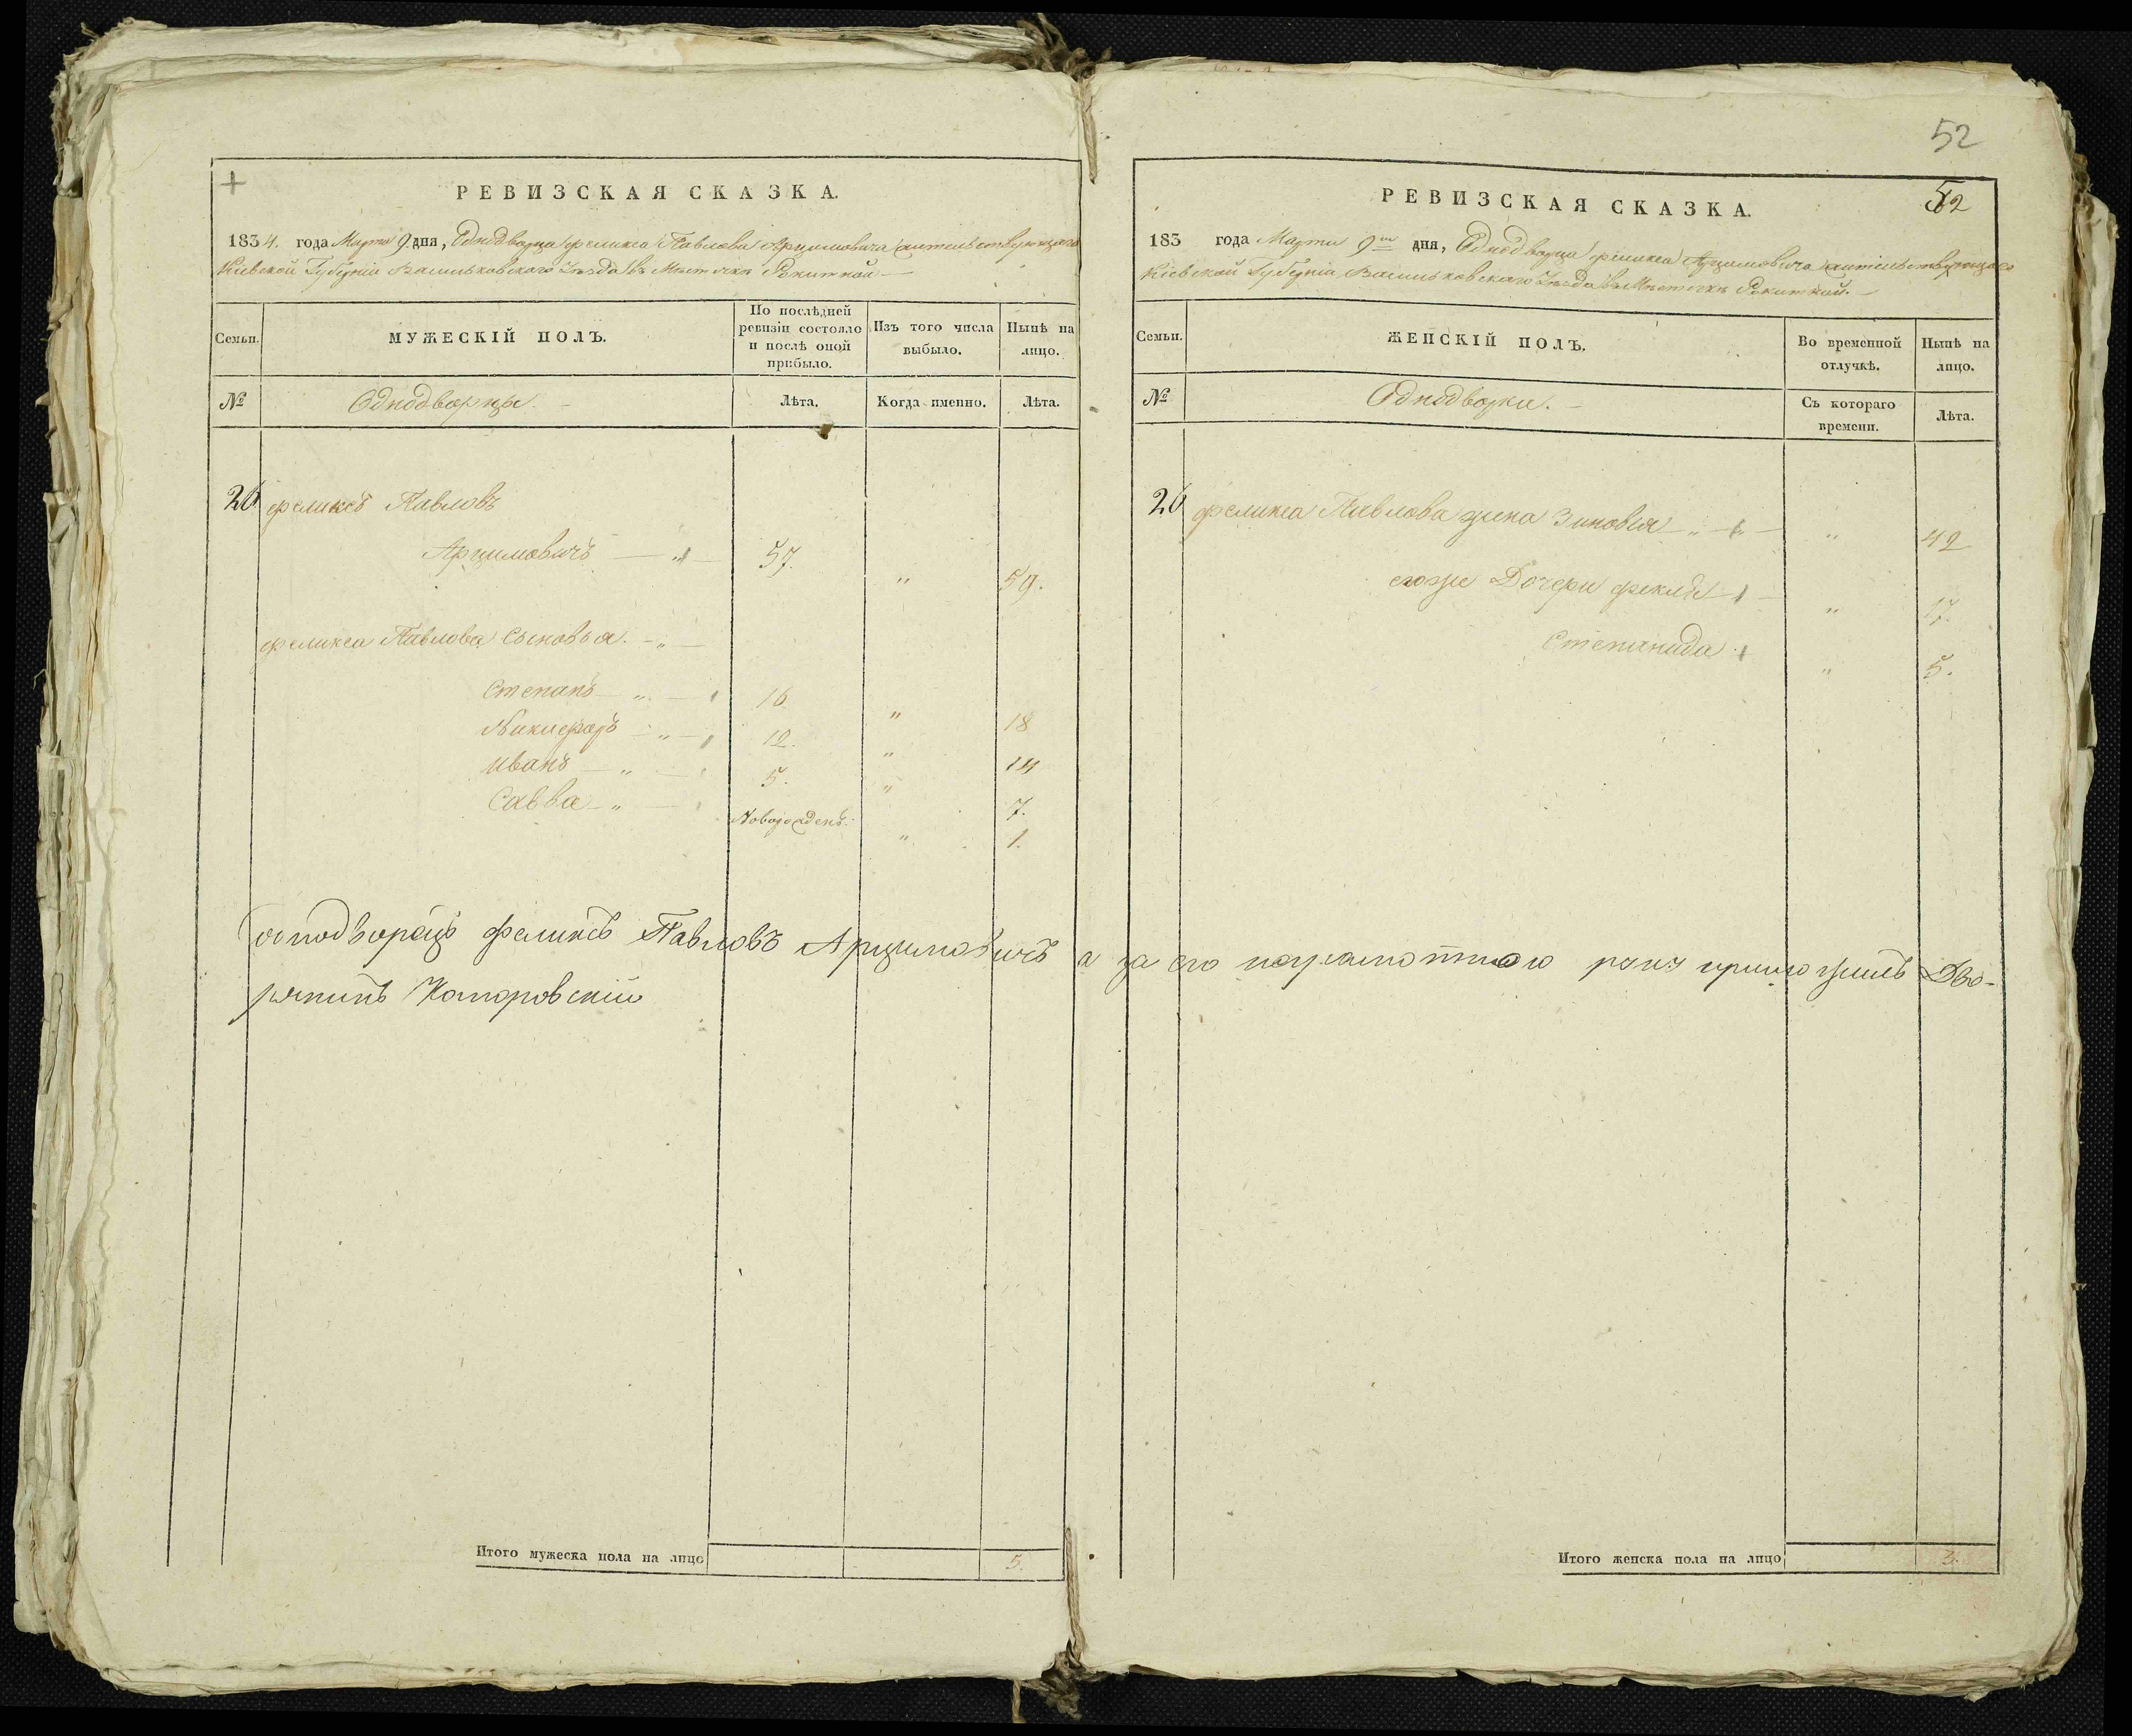 52
+
РЕВИЗСКАЯ СКАЗКА.
1834. года Марта 9. дня, Однодворца Феликса Павлова Арцимовича жительствующаго
Кіевской Губерніи Васильковскаго Уѣзда въ Мѣстечкѣ Рокитной
Семьи.
МУЖЕСКІЙ ПОЛЪ.
По послѣдней
ревизіи состояло
и послѣ оной
прибыло.
Изъ того числа
выбыло.
Нынѣ на
лицо.
№
Однодворцы.
Лѣта.
Когда именно.
Лѣта.
26 Феликсъ Павловъ
Арцимовичъ — 57. " 59.
Феликса Павлова Сыновья. - " -
Степанъ " — 16 " 18
Никифоръ " — 12. " 14
Иванъ " — 5. " 7.
Савва " — Новорожденъ. " 1.
Однодворецъ Феликсъ Павловъ Арцимовичъ а за его неграмотного руку приложилъ Дво-
рянинъ Комаровскій
Итого мужеска пола на лицо 5.
52
РЕВИЗСКАЯ СКАЗКА.
183 года Марта 9го дня, Однодворца Феликса Арцимовича жительствующаго
Кіевской Губерніи Васильковскаго Уѣзда въ Мѣстечкѣ Рокитной. —
Семьи.
ЖЕНСКІЙ ПОЛЪ.
Во временной
отлучкѣ.
Нынѣ на
лицо.
№
Однодворки. —
Съ котораго
времени.
Лѣта.
26 Феликса Павлова жена Зиновія " 42
егоже Дочери Фекла " 17.
Степанида " 5.
Итого женска пола на лицо 3.